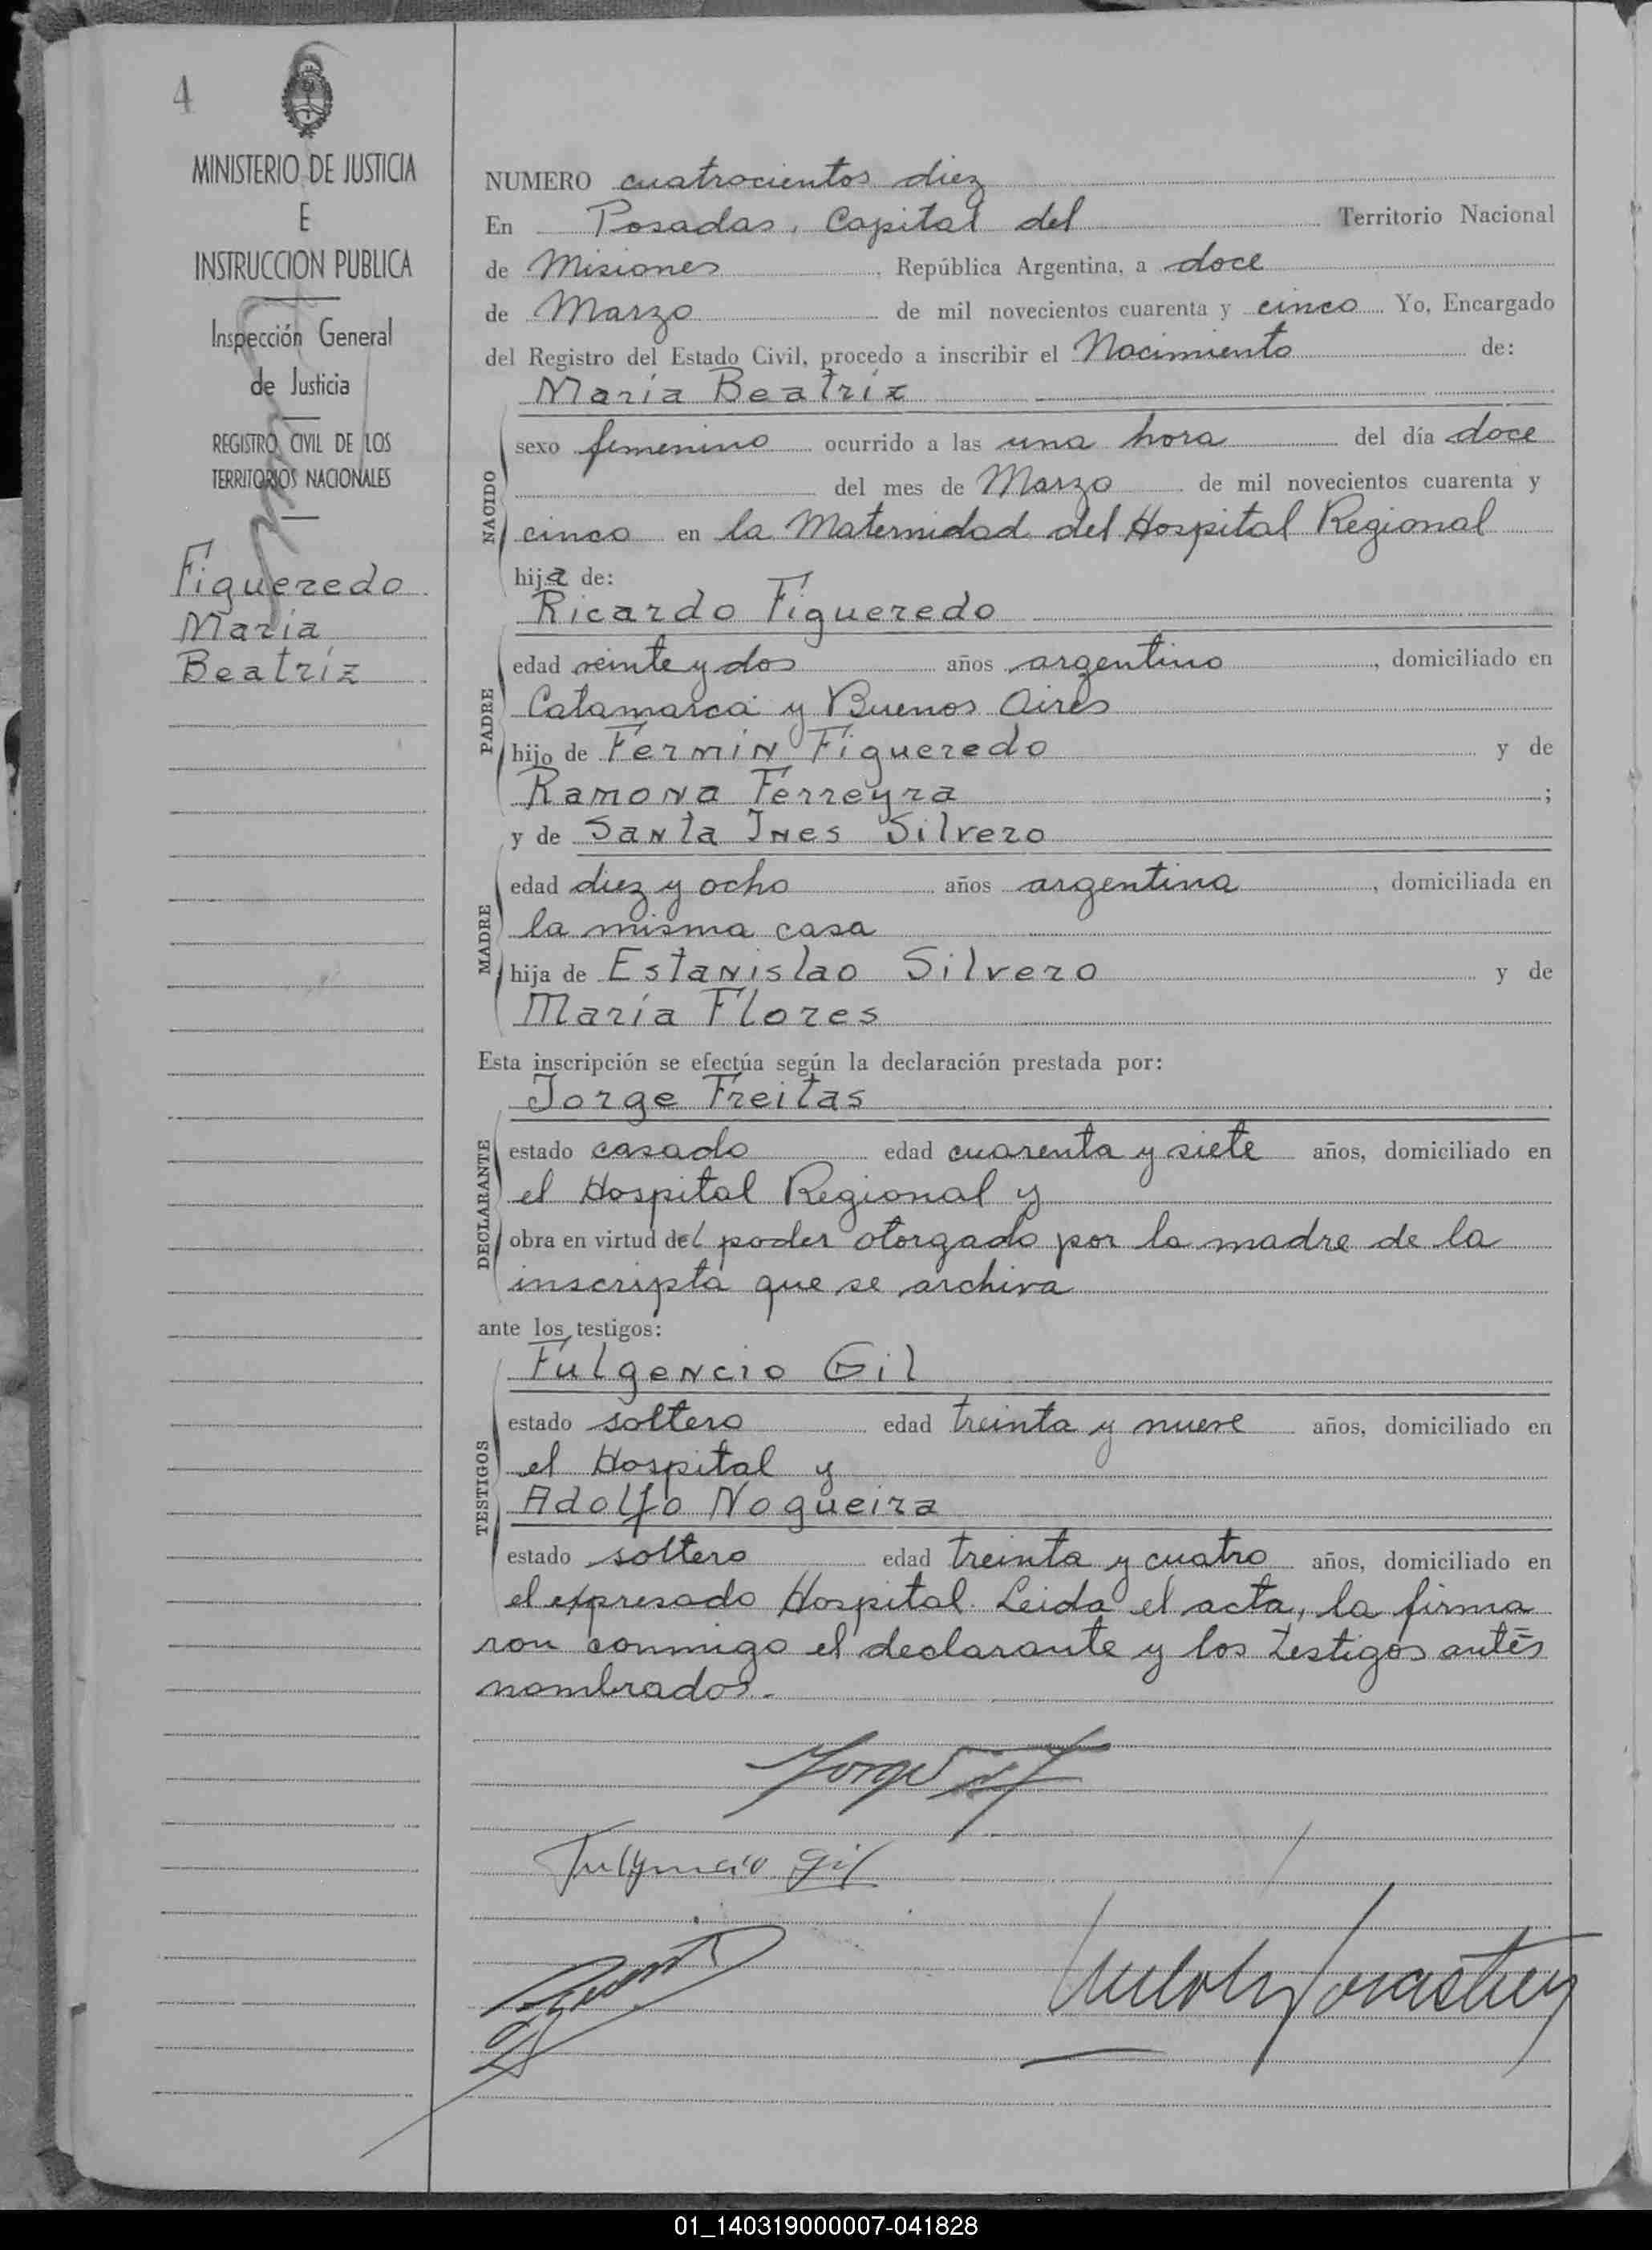 4
MINISTERIO DE JUSTICIA
E
INSTRUCCION PUBLICA
Inspección General
de Justicia
REGISTRO CIVIL DE LOS
TERRITORIOS NACIONALES
Figueredo
María
Beatríz
NUMERO cuatrocientos diez
En Posadas, Capital del Territorio Nacional
de Misiones, República Argentina, a doce
de Marzo de mil novecientos cuarenta y cinco Yo, Encargado
del Registro del Estado Civil, procedo a inscribir el Nacimiento de:
María Beatríz
NACIDO
sexo femenino ocurrido a las una hora del día doce
del mes de Marzo de mil novecientos cuarenta y
cinco en la Maternidad del Hospital Regional
hija de:
Ricardo Figueredo
PADRE
edad veinte y dos años argentino, domiciliado en
Catamarca y Buenos Aires
hijo de Fermín Figueredo y de
Ramona Ferreyra;
y de Santa Ines Silvero
MADRE
edad diez y ocho años argentina, domiciliada en
la misma casa
hija de Estanislao Silvero y de
María Flores
Esta inscripción se efectúa según la declaración prestada por:
Jorge Freitas
DECLARANTE
estado casado edad cuarenta y siete años, domiciliado en
el Hospital Regional y
obra en virtud del poder otorgado por la madre de la
inscripta que se archiva
ante los testigos:
Fulgencio Gil
TESTIGOS
estado soltero edad treinta y nueve años, domiciliado en
el Hospital y
Adolfo Nogueira
estado soltero edad treinta y cuatro años, domiciliado en
el expresado Hospital. Leida el acta, la firma
ron conmigo el declarante y los testigos antes
nombrados.-
Jorge
Fulgencio Gil
01_140319000007-041828